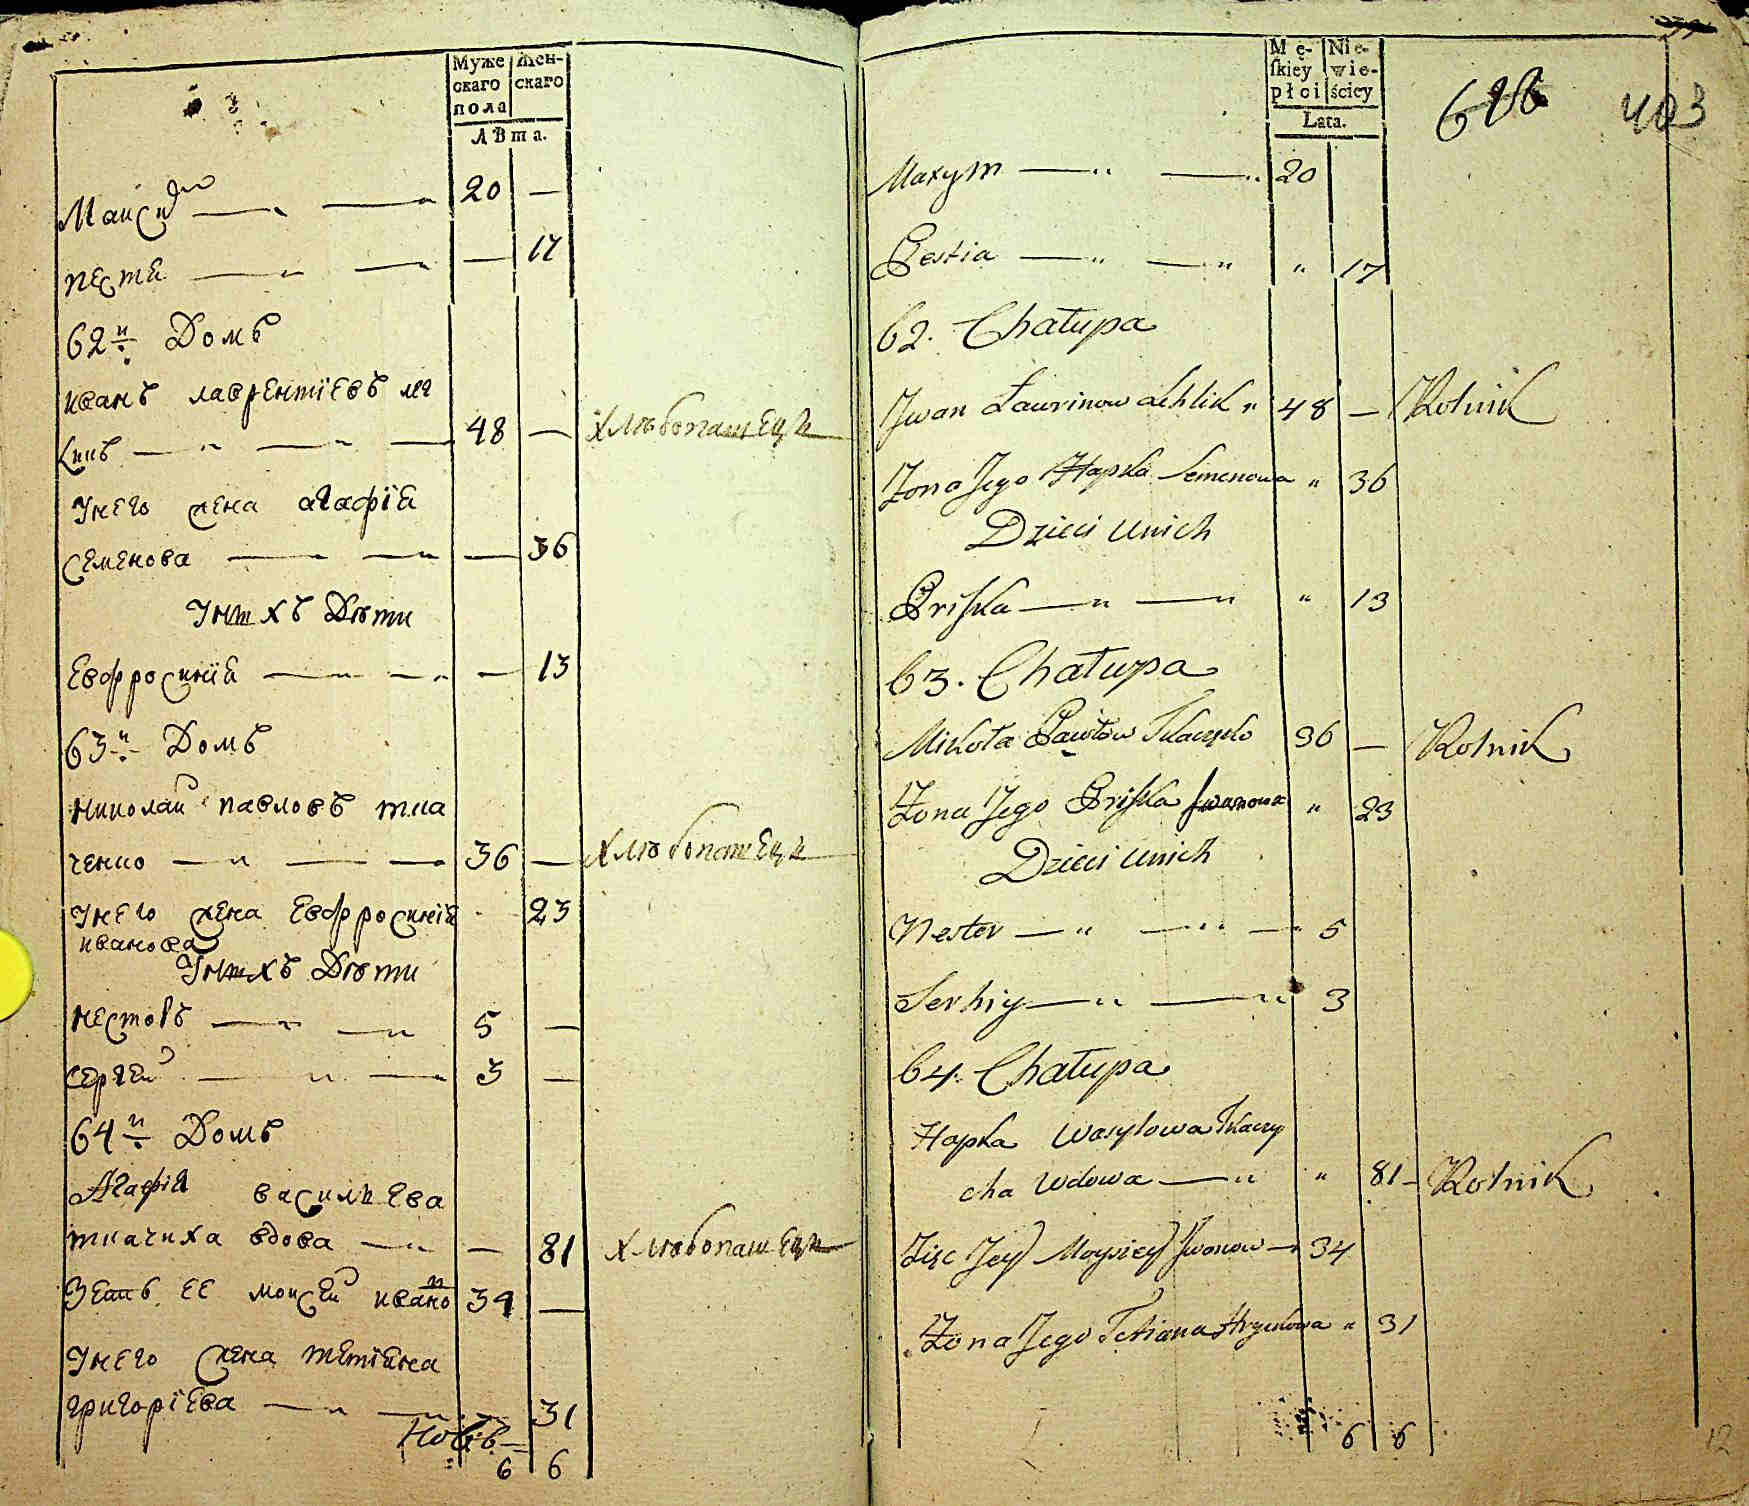 Муже
скаго
пола
Жен-
скаго
лѣта.
Максим — „ — „ 20 —
пестя — „ — „ — 17
62й Домъ
иванъ лаврентіевъ лех
ликъ — „ — „ — 48 — хлѣбопашецъ
Унего жена агафія
семенова — — „ — 36
Унихъ Дѣти
Евфросинія — „ — „ — 13
63й Домъ
николай павловъ тка
ченко — „ — — 36 — хлѣбопашецъ
Унего жена Евфросинія 23
иванова
Унихъ Дѣти
несторъ — „ — „ 5 —
сергей — „ — 3 —
64й Домъ
Агафія васильева
ткачиха вдова — „ — 81 хлѣбопашецъ
Зеть ее моисей ивано 34 —
Унего жена тетіяна
григоріева — „ — „ 31
6 6
Mę-
skiey
płci
Nie-
wie-
ściey
Lata.
616 403
Maxym — „ — „ 20
Pestia — „ — „ „ 17
62. Chałupa
Jwan Ławrinow Lehlik „ 48 — Rolnik
Żona Jego Hapka Semenowa „ 36
Dzieci Unich
Priska — „ — „ „ 13
63. Chałupa
Mikoła Pawłow Tkaczęko 36 — Rolnik
Żona Jego Priska Jwanowa „ 23
Dzieci Unich
Nester — „ — „ — 5
Serhiy — „ — „ 3
64. Chałupa
Hapka Wasylowa Tkaczy
cha Wdowa — „ „ 81 — Rolnik
Zięc Jey Moysiey Jwanow — 34
Żona Jego Tetiana Hryculowa „ 31
6 6
12